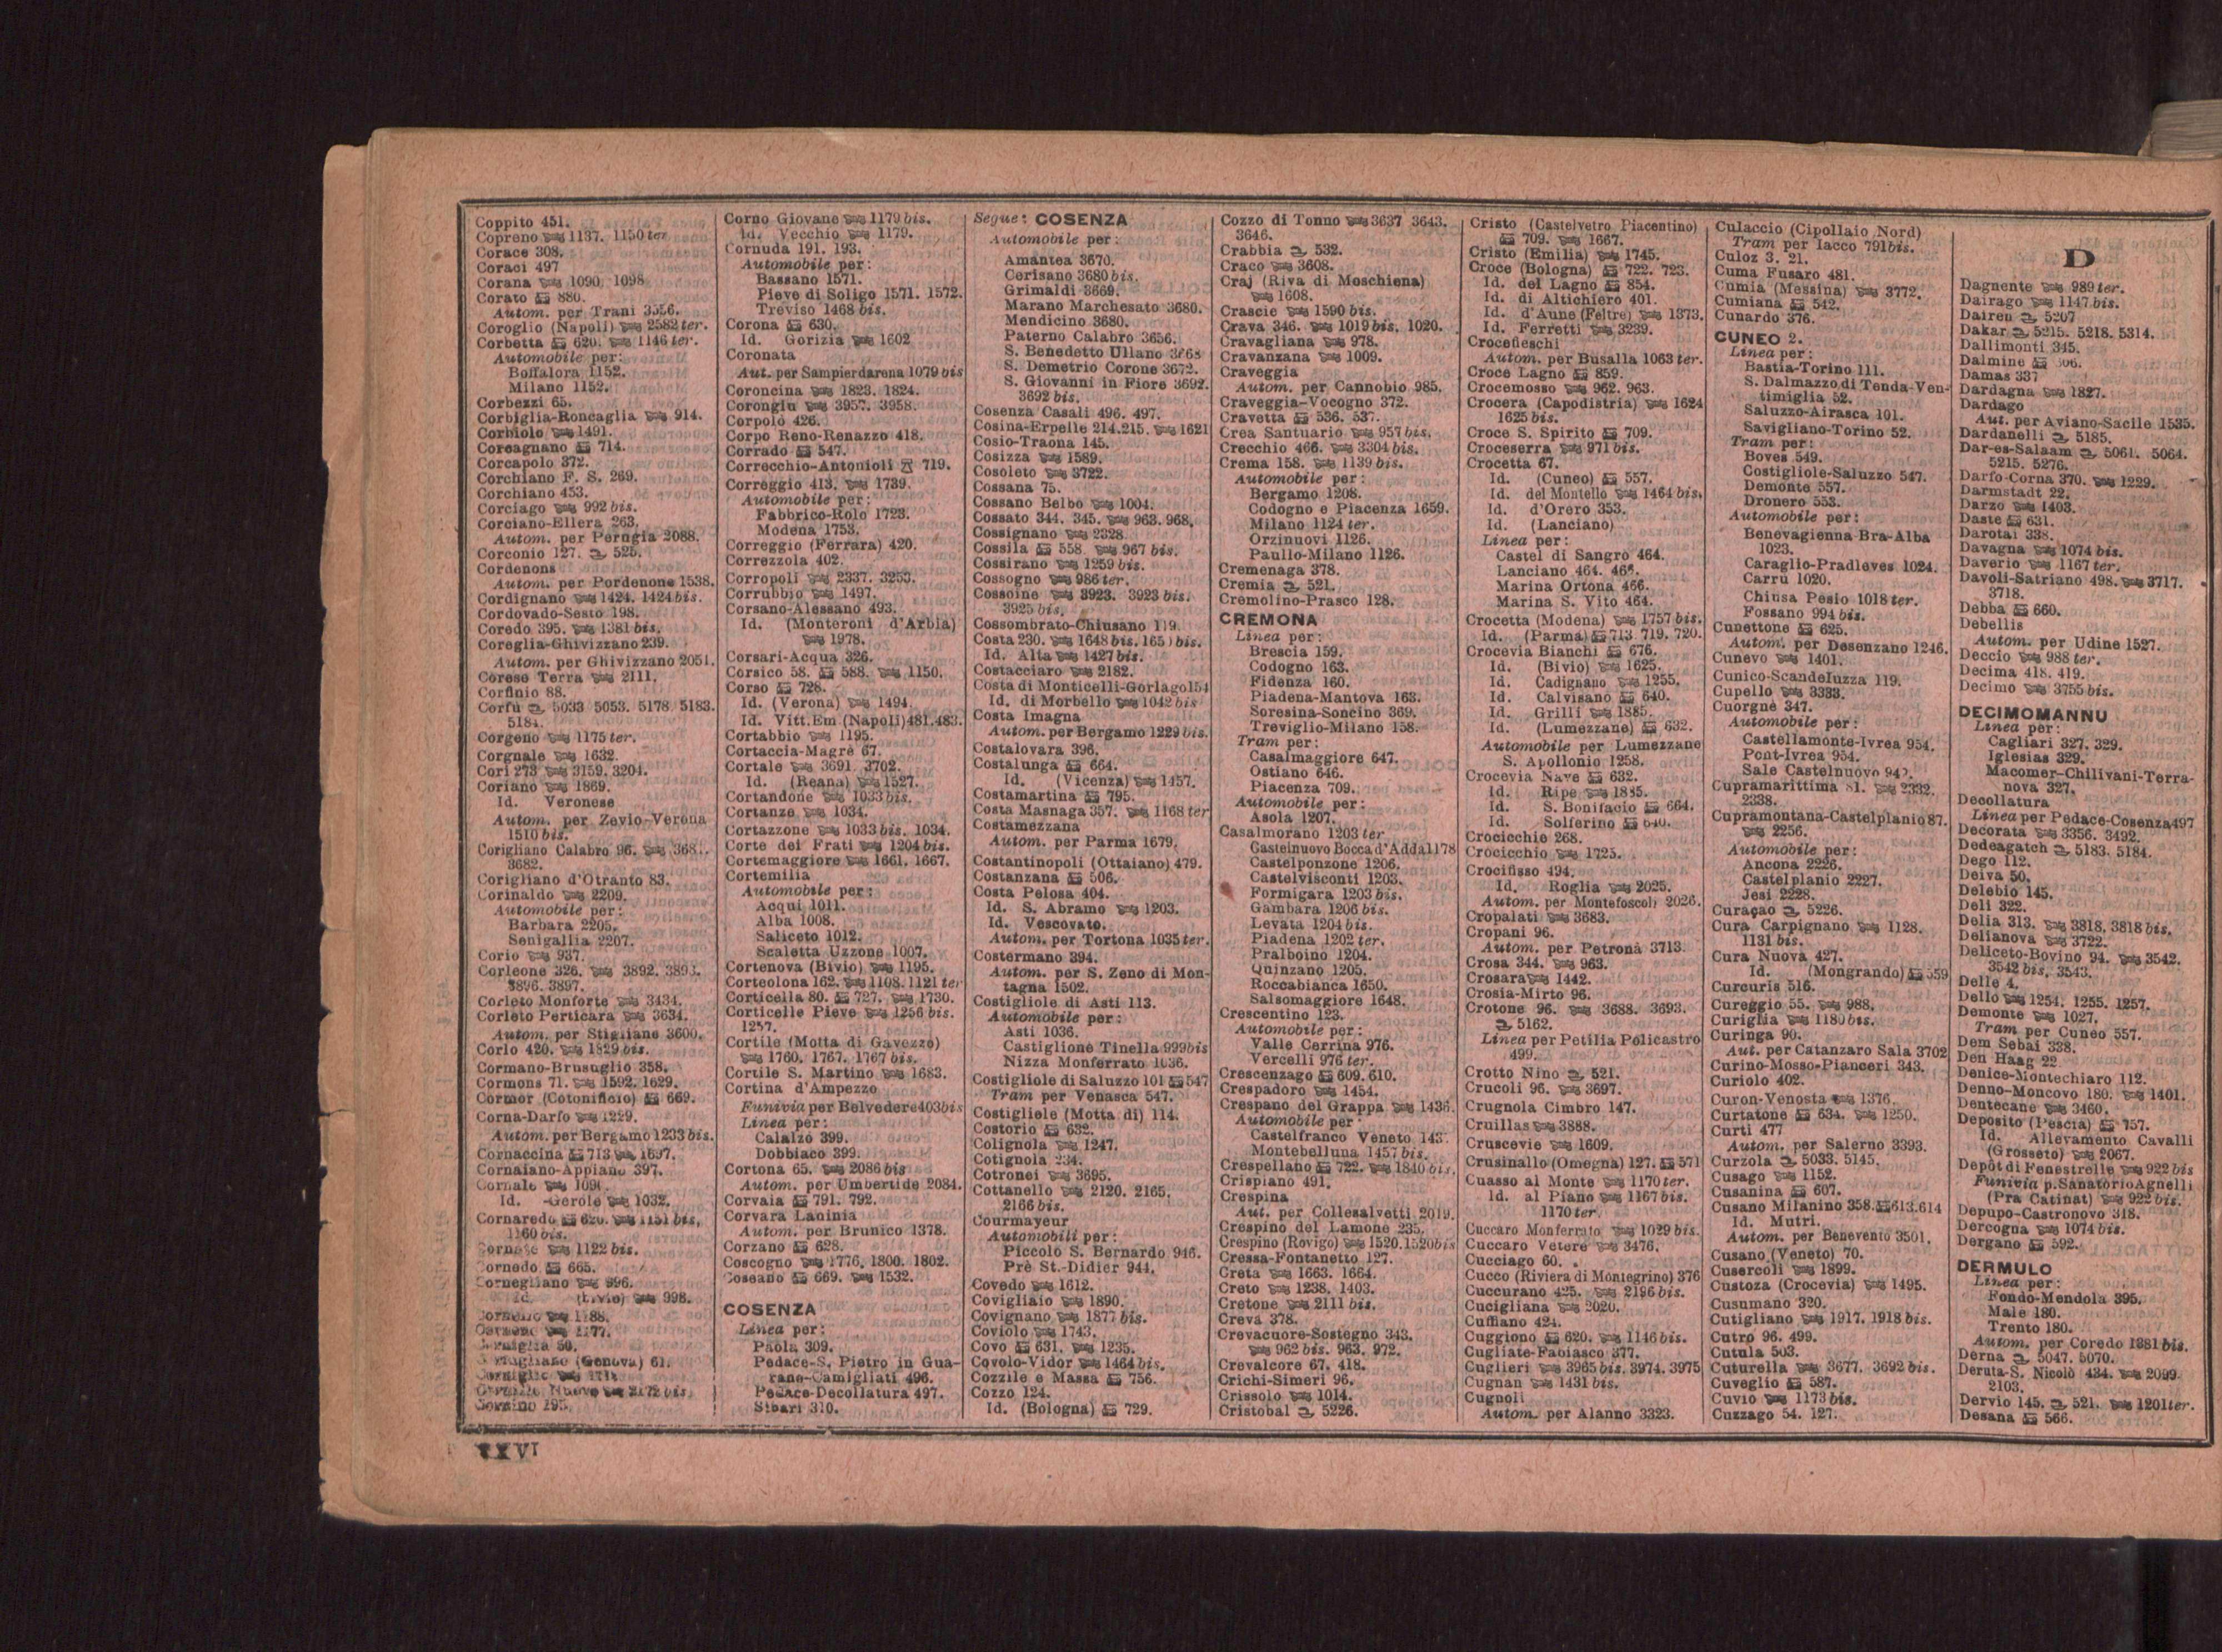 Coppito 451.
Copreno 1137. 1150 ter
Corace 308.
Coraci 497
Corana 1090. 1098
Corato 880.
Autom. per Trani 3556.
Coroglio (Napoli) 2582 ter.
Corbetta 620. 1146 ter.
Automobile per:
Boffalora 1152.
Milano 1152.
Corbezzi 65.
Corbiglia-Roncaglia 914.
Corbiolo 1491.
Corcagnano 714.
Corcapolo 372.
Corchiano F. S. 269.
Corchiano 453.
Corciago 992 bis.
Corciano-Ellera 263.
Autom. per Perugia 2088.
Corconio 127. 525.
Cordenons
Autom. per Pordenone 1538.
Cordignano 1424. 1424 bis.
Cordovado-Sesto 198.
Coredo 395. 1381 bis.
Coreglia-Ghivizzano 239.
Autom. per Ghivizzano 2051.
Corese Terra 2111.
Corfinio 88.
Corfù 5033 5053. 5178 5183.
5184.
Corgeno 1175 ter.
Corgnale 1632.
Cori 273 3159. 3204.
Coriano 1869.
Id. Veronese
Autom. per Zevio-Verona
1510 bis.
Corigliano Calabro 96.
3682.
Corigliano d'Otranto 83.
Corinaldo 2209.
Automobile per:
Barbara 2205.
Senigallia 2207.
Corio 937.
Corleone 326. 3892. 3893.
3896. 3897.
Corleto Monforte 3434.
Corleto Perticara 3634.
Autom. per Stigliano 3600.
Corlo 420. 1829 bis.
Cormano-Brusuglio 358.
Cormons 71. 1592. 1629.
Cormor (Cotonificio) 669.
Corna-Darfo 1229.
Autom. per Bergamo 1233 bis.
Cornaccina 713 1697.
Cornaiano-Appiano 397.
Cornale
Id. -Gerole 1032.
Cornaredo 620. 1151 bis.
1160 bis.
1122 bis.
Cornedo 665.
Cornegliano 996.
998.
(Genova) 61.
Corno Giovane 1179 bis.
Id. Vecchio 1179.
Cornuda 191. 193.
Automobile per:
Bassano 1571.
Pieve di Soligo 1571. 1572.
Treviso 1468 bis.
Corona 630.
Id. Gorizia 1602
Coronata
Aut. per Sampierdarena 1079 bis
Coroncina 1823. 1824.
Corongiu 3957. 3958.
Corpolò 426.
Corpo Reno-Renazzo 418.
Corrado 547.
Correcchio-Antonioli 719.
Correggio 413. 1739.
Automobile per:
Fabbrico-Rolo 1723.
Modena 1753.
Correggio (Ferrara) 420.
Correzzola 402.
Corropoli 2337. 3253.
Corrubbio 1497.
Corsano-Alessano 493.
Id. (Monteroni d'Arbia)
1978.
Corsari-Acqua 326.
Corsico 58. 588. 1150.
Corso 728.
Id. (Verona) 1494.
Id. Vitt. Em (Napoli) 481. 483.
Cortabbio 1195.
Cortaccia-Magrè 67.
Cortale 3691. 3702.
Id. (Reana) 1527.
Cortandone 1033 bis.
Cortanze 1034.
Cortazzone 1033 bis. 1034.
Corte dei Frati 1204 bis.
Cortemaggiore 1661. 1667.
Cortemilia
Automobile per:
Acqui 1011.
Alba 1008.
Saliceto 1012.
Scaletta Uzzone 1007.
Cortenova (Bivio) 1195.
Corteolona 162. 1108. 1121 ter
Corticella 80. 727. 1730.
Corticelle Pieve 1256 bis.
1257.
Cortile (Motta di Gavezzo)
1760. 1767. 1767 bis.
Cortile S. Martino 1683.
Cortina d'Ampezzo
Funivia per Belvedere 403 bis
Linea per:
Calalzo 399.
Dobbiaco 399.
Cortona 65. 2086 bis
Autom. per Umbertide 2084.
Corvaia 791. 792.
Corvara Ladinia
Autom. per Brunico 1378.
Corzano 628.
Coscogno 1776. 1800. 1802.
Coseano 669. 1532.
COSENZA
Linea per:
Paola 309.
Pedace-S. Pietro in Gua-
rano-Camigliati 496.
Pedace-Decollatura 497.
Sibari 310.
Segue: COSENZA
Automobile per:
Amantea 3670.
Cerisano 3680 bis.
Grimaldi 3669.
Marano Marchesato 3680.
Mendicino 3680.
Paterno Calabro 3656.
S. Benedetto Ullano 3668
S. Demetrio Corone 3672.
S. Giovanni in Fiore 3692.
3692 bis.
Cosenza Casali 496. 497.
Cosina-Erpelle 214. 215. 1621
Cosio-Traona 145.
Cosizza 1589.
Cosoleto 3722.
Cossana 75.
Cossano Belbo 1004.
Cossato 344. 345. 963. 968.
Cossignano 2328
Cossila 558. 967 bis.
Cossirano 1259 bis.
Cossogno 986 ter.
Cossoine 3923. 3923 bis.
3925 bis.
Cossombrato-Chiusano 119.
Costa 230. 1648 bis. 1650 bis.
Id. Alta 1427 bis.
Costacciaro 2182.
Costa di Monticelli-Gorlago 154
Id. di Morbello 1042 bis
Costa Imagna
Autom. per Bergamo 1229 bis.
Costalovara 396.
Costalunga 664.
Id. (Vicenza) 1457.
Costamartina 795.
Costa Masnaga 357. 1168 ter
Costamezzana
Autom. per Parma 1679.
Costantinopoli (Ottaiano) 479.
Costanzana 506.
Costa Pelosa 404.
Id. S. Abramo 1203.
Id. Vescovato.
Autom. per Tortona 1035 ter.
Costermano 394.
Autom. per S. Zeno di Mon-
tagna 1502.
Costigliole di Asti 113.
Automobile per:
Asti 1036.
Castiglione Tinella 999 bis
Nizza Monferrato 1036.
Costigliole di Saluzzo 101 547
Tram per Venasca 547.
Costigliole (Motta di) 114.
Costorio 632.
Cotignola 1247.
Cotignola 234.
Cotronei 3695.
Cottanello 2120. 2165.
2166 bis.
Courmayeur
Automobili per:
Piccolo S. Bernardo 946.
Prè St.-Didier 944.
Covedo 1612.
Covigliaio 1890.
Covignano 1877 bis.
Coviolo 1743.
Covo 631. 1235.
Covolo-Vidor 1464 bis.
Cozzile e Massa 756.
Cozzo 124.
Id. (Bologna) 729.
Cozzo di Tonno 3637 3643.
3646.
Crabbia 532.
Craco 3608.
Craj (Riva di Moschiena)
1608.
Crascie 1590 bis.
Crava 346. 1019 bis. 1020.
Cravagliana 978.
Cravanzana 1009.
Craveggia
Autom. per Cannobio 985.
Craveggia-Vocogno 372.
Cravetta 536. 537.
Crea Santuario 957 bis.
Crecchio 466. 3304 bis.
Crema 158. 1139 bis.
Automobile per:
Bergamo 1208.
Codogno e Piacenza 1659.
Milano 1124 ter.
Orzinuovi 1126.
Paullo-Milano 1126.
Cremenaga 378.
Cremia 521.
Cremolino-Prasco 128.
CREMONA
Linea per:
Brescia 159.
Codogno 163.
Fidenza 160.
Piadena-Mantova 163.
Soresina-Soncino 369.
Treviglio-Milano 158.
Tram per:
Casalmaggiore 647.
Ostiano 646.
Piacenza 709.
Automobile per:
Asola 1207.
Casalmorano 1203 ter
Castelnuovo Bocca d'Adda 1178
Castelponzone 1206.
Castelvisconti 1203.
Formigara 1203 bis.
Gambara 1206 bis.
Levata 1204 bis.
Piadena 1202 ter.
Pralboino 1204.
Quinzano 1205.
Roccabianca 1650.
Salsomaggiore 1648.
Crescentino 123.
Automobile per:
Valle Cerrina 976.
Vercelli 976 ter.
Crescenzago 609. 610.
Crespadoro 1454.
Crespano del Grappa 1436.
Automobile per
Castelfranco Veneto
Montebelluna 1457 bis.
Crespellano 722. 1840 bis.
Crispiano 491.
Crespina
Aut. per Collesalvetti 2019.
Crespino del Lamone 235.
Crespino (Rovigo) 1520. 1520 bis
Cressa-Fontanetto 127.
Creta 1663. 1664.
Creto 1238. 1403.
Cretone 2111 bis.
Creva 378.
Crevacuore-Sostegno 343.
962 bis. 963. 972.
Crevalcore 67. 418.
Crichi-Simeri 96.
Crissolo 1014.
Cristobal 5226.
Cristo (Castelvetro Piacentino)
709. 1667.
Cristo (Emilia) 1745.
Croce (Bologna) 722. 723.
Id. del Lagno 854.
Id. di Altichiero 401.
Id. d'Aune (Feltre) 1373.
Id. Ferretti 3239.
Crocefieschi
Autom. per Busalla 1063 ter.
Croce Lagno 859.
Crocemosso 962. 963.
Crocera (Capodistria) 1624
1625 bis.
Croce S. Spirito 709.
Croceserra 971 bis.
Crocetta 67.
Id. (Cuneo) 557.
Id. del Montello 1464 bis.
Id. d'Orero 353.
Id. (Lanciano)
Linea per:
Castel di Sangro 464.
Lanciano 464. 466.
Marina Ortona 466.
Marina S. Vito 464.
Crocetta (Modena) 1757 bis.
Id. (Parma) 713. 719. 720.
Crocevia Bianchi 676.
Id. (Bivio) 1625.
Id. Cadignano 1255.
Id. Calvisano 640.
Id. Grilli 1885.
Id. (Lumezzane) 632.
Automobile per Lumezzane
S. Apollonio 1258.
Crocevia Nave 632.
Id. Ripe 1885.
Id. S. Bonifacio 664.
Id. Solferino 640.
Crocicchie 268.
Crocicchio 1725.
Crocifisso 494.
Id. Roglia 2025.
Autom. per Montefoscoli 2026.
Cropalati 3683.
Cropani 96.
Autom. per Petronà 3713.
Crosa 344. 963.
Crosara 1442.
Crosia-Mirto 96.
Crotone 96. 3688. 3693.
5162.
Linea per Petilia Policastro
499.
Crotto Nino 521.
Crucoli 96. 3697.
Crugnola Cimbro 147.
Cruillas 3888.
Cruscevie 1609.
Crusinallo (Omegna) 127. 571
Cuasso al Monte 1170 ter.
Id. al Piano 1167 bis.
1170 ter.
Cuccaro Monferrato 1029 bis.
Cuccaro Vetere 3476.
Cucciago 60.
Cucco (Riviera di Montegrino) 376
Cuccurano 425. 2196 bis.
Cucigliana 2020.
Cuffiano 424.
Cuggiono 620. 1146 bis.
Cugliate-Fabiasco 377.
Cuglieri 3965 bis. 3974. 3975
Cugnan 1431 bis.
Cugnoli
Autom. per Alanno 3323.
Culaccio (Cipollaio Nord)
Tram per Iacco 791 bis.
Culoz 3. 21.
Cuma Fusaro 481.
Cumia (Messina) 3772.
Cumiana 542.
Cunardo 376.
CUNEO 2.
Linea per:
Bastia-Torino 111.
S. Dalmazzo di Tenda-Ven-
timiglia 52.
Saluzzo-Airasca 101.
Savigliano-Torino 52.
Tram per:
Boves 549.
Costigliole-Saluzzo 547.
Demonte 557.
Dronero 553.
Automobile per:
Benevagienna-Bra-Alba
1023.
Caraglio-Pradleves 1024.
Carrù 1020.
Chiusa Pesio 1018 ter.
Fossano 994 bis.
Cunettone 625.
Autom. per Desenzano 1246.
Cunevo 1401.
Cunico-Scandeluzza 119.
Cupello 3333.
Cuorgnè 347.
Automobile per:
Castellamonte-Ivrea 954.
Pont-Ivrea 954.
Sale Castelnuovo
Cupramarittima 81. 2332.
2338.
Cupramontana-Castelplanio 87.
2256.
Automobile per:
Ancona 2226.
Castelplanio 2227.
Jesi 2228.
Curaçao 5226.
Cura Carpignano 1128.
1131 bis.
Cura Nuova 427.
Id. (Mongrando) 559
Curcuris 516.
Cureggio 55. 988.
Curiglia 1180 bis.
Curinga 90.
Aut. per Catanzaro Sala 3702
Curino-Mosso-Pianceri 343.
Curiolo 402.
Curon-Venosta 1376.
Curtatone 634. 1250.
Curti 477
Autom. per Salerno 3393.
Curzola 5033. 5145.
Cusago 1152.
Cusanina 607.
Cusano Milanino 358. 613. 614
Id. Mutri.
Autom. per Benevento 3501.
Cusano (Veneto) 70.
Cusercoli 1899.
Custoza (Crocevia) 1495.
Cusumano 320.
Cutigliano 1917. 1918 bis.
Cutro 96. 499.
Cutula 503.
Cuturella 3677. 3692 bis.
Cuveglio 587.
Cuvio 1173 bis.
Cuzzago 54. 127.
D
Dagnente 989 ter.
Dairago 1147 bis.
Dairen 5207
Dakar 5215. 5218. 5314.
Dallimonti 345.
Dalmine 606.
Damas 337
Dardagna 1827.
Dardago
Aut. per Aviano-Sacile 1535.
Dardanelli 5185.
Dar-es-Salaam 5061. 5064.
5215. 5276.
Darfo-Corna 370. 1229.
Darmstadt 22.
Darzo 1403.
Daste 631.
Darotai 338.
Davagna 1074 bis.
Daverio 1167 ter.
Davoli-Satriano 498. 3717.
3718.
Debba 660.
Debellis
Autom. per Udine 1527.
Deccio 988 ter.
Decima 418. 419.
Decimo 3755 bis.
DECIMOMANNU
Linea per:
Cagliari 327. 329.
Iglesias 329.
Macomer-Chilivani-Terra-
nova 327.
Decollatura
Linea per Pedace-Cosenza 497
Decorata 3356. 3492.
Dedeagatch 5183. 5184.
Dego 112.
Deiva 50.
Delebio 145.
Deli 322.
Delia 313. 3818. 3818 bis.
Delianova 3722.
Deliceto-Bovino 94. 3542.
3542 bis. 3543.
Delle 4.
Dello 1254. 1255. 1257.
Demonte 1027.
Tram per Cuneo 557.
Dem Sebai 338.
Den Haag 22
Denice-Montechiaro 112.
Denno-Moncovo 180. 1401.
Dentecane 3460.
Deposito (Pescia) 757.
Id. Allevamento Cavalli
(Grosseto) 2067.
Depôt di Fenestrelle 922 bis
Funivia p. Sanatorio Agnelli
(Pra Catinat) 922 bis.
Depupo-Castronovo 318.
Dercogna 1074 bis.
Dergano 592.
DERMULO
Linea per:
Fondo-Mendola 395.
Male 180.
Trento 180.
Autom. per Coredo 1381 bis.
Derna 5047. 5070.
Deruta-S. Nicolò 434. 2099.
2103.
Dervio 145. 521. 1201 ter.
Desana 566.
XXVI